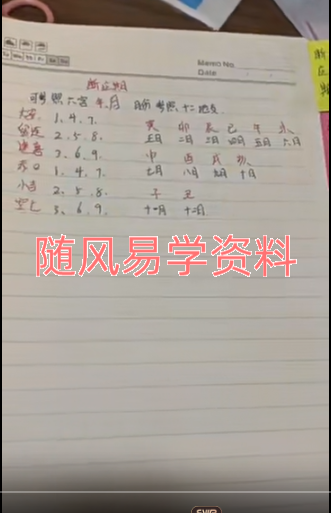 Memo No.
Date
断应期
可参照六宫 年、月 月份参照十二地支
大安 1、4、7、
留连 2、5、8、
速喜 3、6、9、
赤口 1、4、7、
小吉 2、5、8、
空亡 3、6、9、
寅 卯 辰 巳 午 未、
正月 二月 三月 四月 五月 六月
申 酉 戌 亥
七月 八月 九月 十月
子 丑
十一月 十二月
断应期
随风易学资料